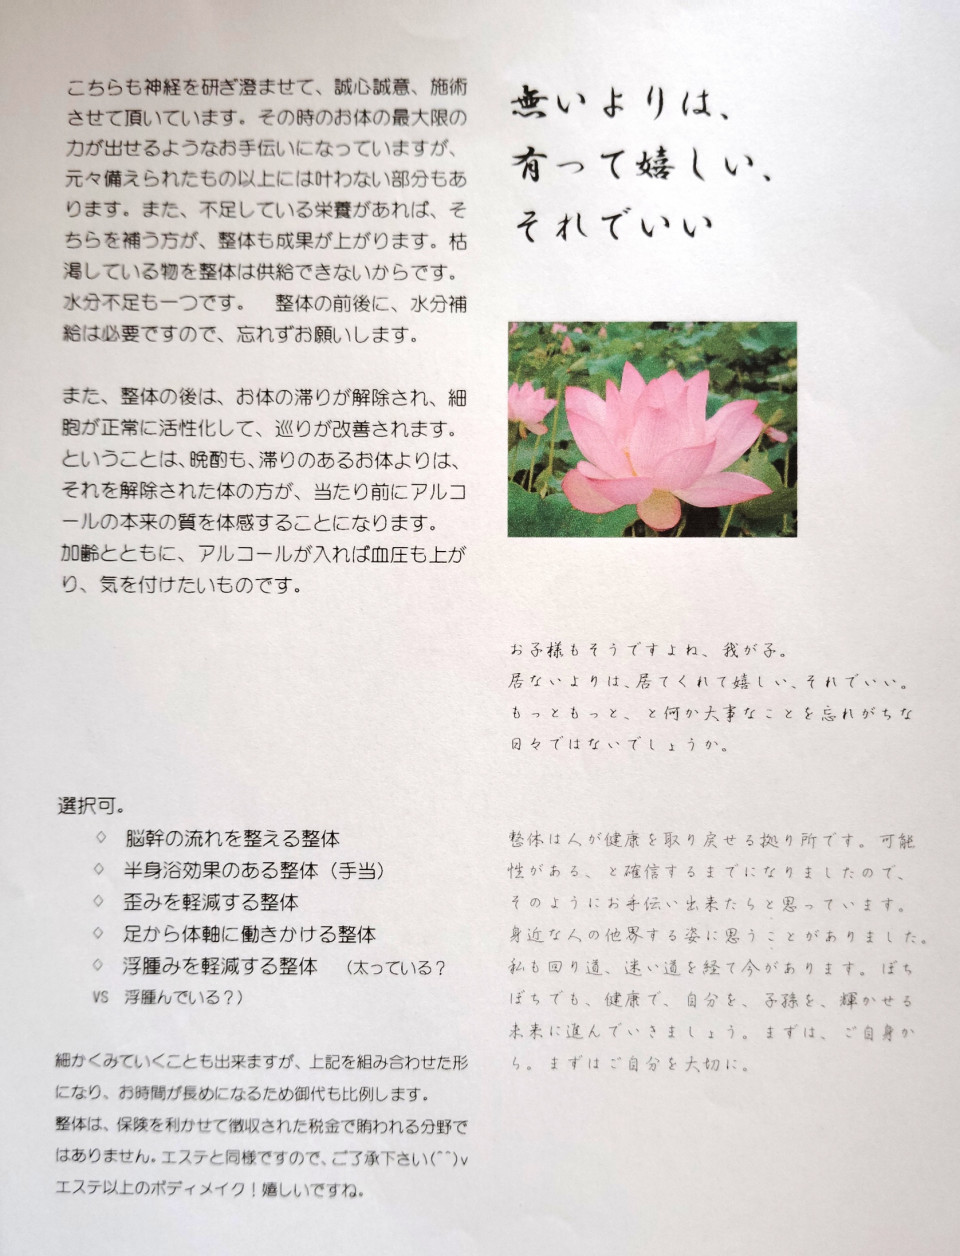 こちらも神経を研ぎ澄ませて、誠心誠意、施術
させて頂いています。その時のお体の最大限の
力が出せるようなお手伝いになっていますが、
元々備えられたもの以上には叶わない部分もあ
ります。また、不足している栄養があれば、そ
ちらを補う方が、整体も成果が上がります。枯
渇している物を整体は供給できないからです。
水分不足も一つです。　整体の前後に、水分補
給は必要ですので、忘れずお願いします。
また、整体の後は、お体の滞りが解除され、細
胞が正常に活性化して、巡りが改善されます。
ということは、晩酌も、滞りのあるお体よりは、
それを解除された体の方が、当たり前にアルコ
ールの本来の質を体感することになります。
加齢とともに、アルコールが入れば血圧も上が
り、気を付けたいものです。
選択可。
◇　脳幹の流れを整える整体
◇　半身浴効果のある整体（手当）
◇　歪みを軽減する整体
◇　足から体軸に働きかける整体
◇　浮腫みを軽減する整体　（太っている？
VS　浮腫んでいる？）
細かくみていくことも出来ますが、上記を組み合わせた形
になり、お時間が長めになるため御代も比例します。
整体は、保険を利かせて徴収された税金で賄われる分野で
はありません。エステと同様ですので、ご了承下さい(^^)v
エステ以上のボディメイク！嬉しいですね。
無いよりは、
有って嬉しい、
それでいい
お子様もそうですよね、我が子。
居ないよりは、居てくれて嬉しい、それでいい。
もっともっと、と何か大事なことを忘れがちな
日々ではないでしょうか。
整体は人が健康を取り戻せる拠り所です。可能
性がある、と確信するまでになりましたので、
そのようにお手伝い出来たらと思っています。
身近な人の他界する姿に思うことがありました。
私も回り道、迷い道を経て今があります。ぼち
ぼちでも、健康で、自分を、子孫を、輝かせる
未来に進んでいきましょう。まずは、ご自身か
ら。まずはご自分を大切に。